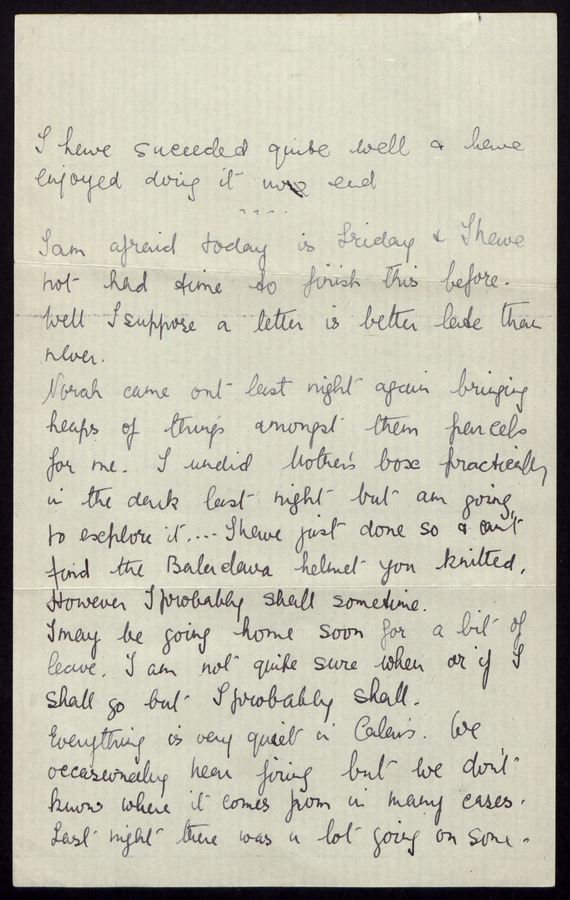 I have succeeded quite well & have
enjoyed doing it no end
I am afraid today is Friday & I have
not had time to finish this before.
Well I suppose a letter is better late than
never.
Norah came out last night again bringing
heaps of things amongst them parcels
for me. I undid Mother's box practically
in the dark last night but am going
to explore it.... I have just done so & can't
find the Balaclava helmet you knitted.
However I probably shall sometime.
I may be going home soon for a bit of
leave. I am not quite sure when or if I
shall go but I probably shall.
Everything is very quiet in Calais. We
occasionally hear firing but we don't
know where it comes from in many cases.
Last night there was a lot going on some-